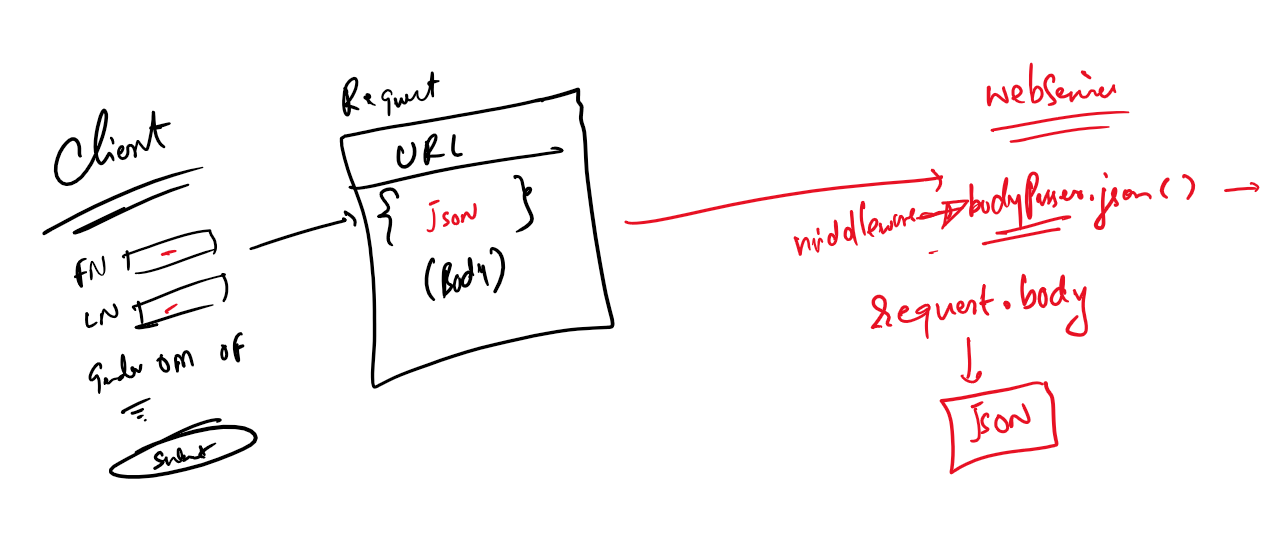 Client
FN
LN
Gender OM OF
Submit
Request
URL
{ json }
(Body)
webServier
middleware bodyParser.json()
request.body
json